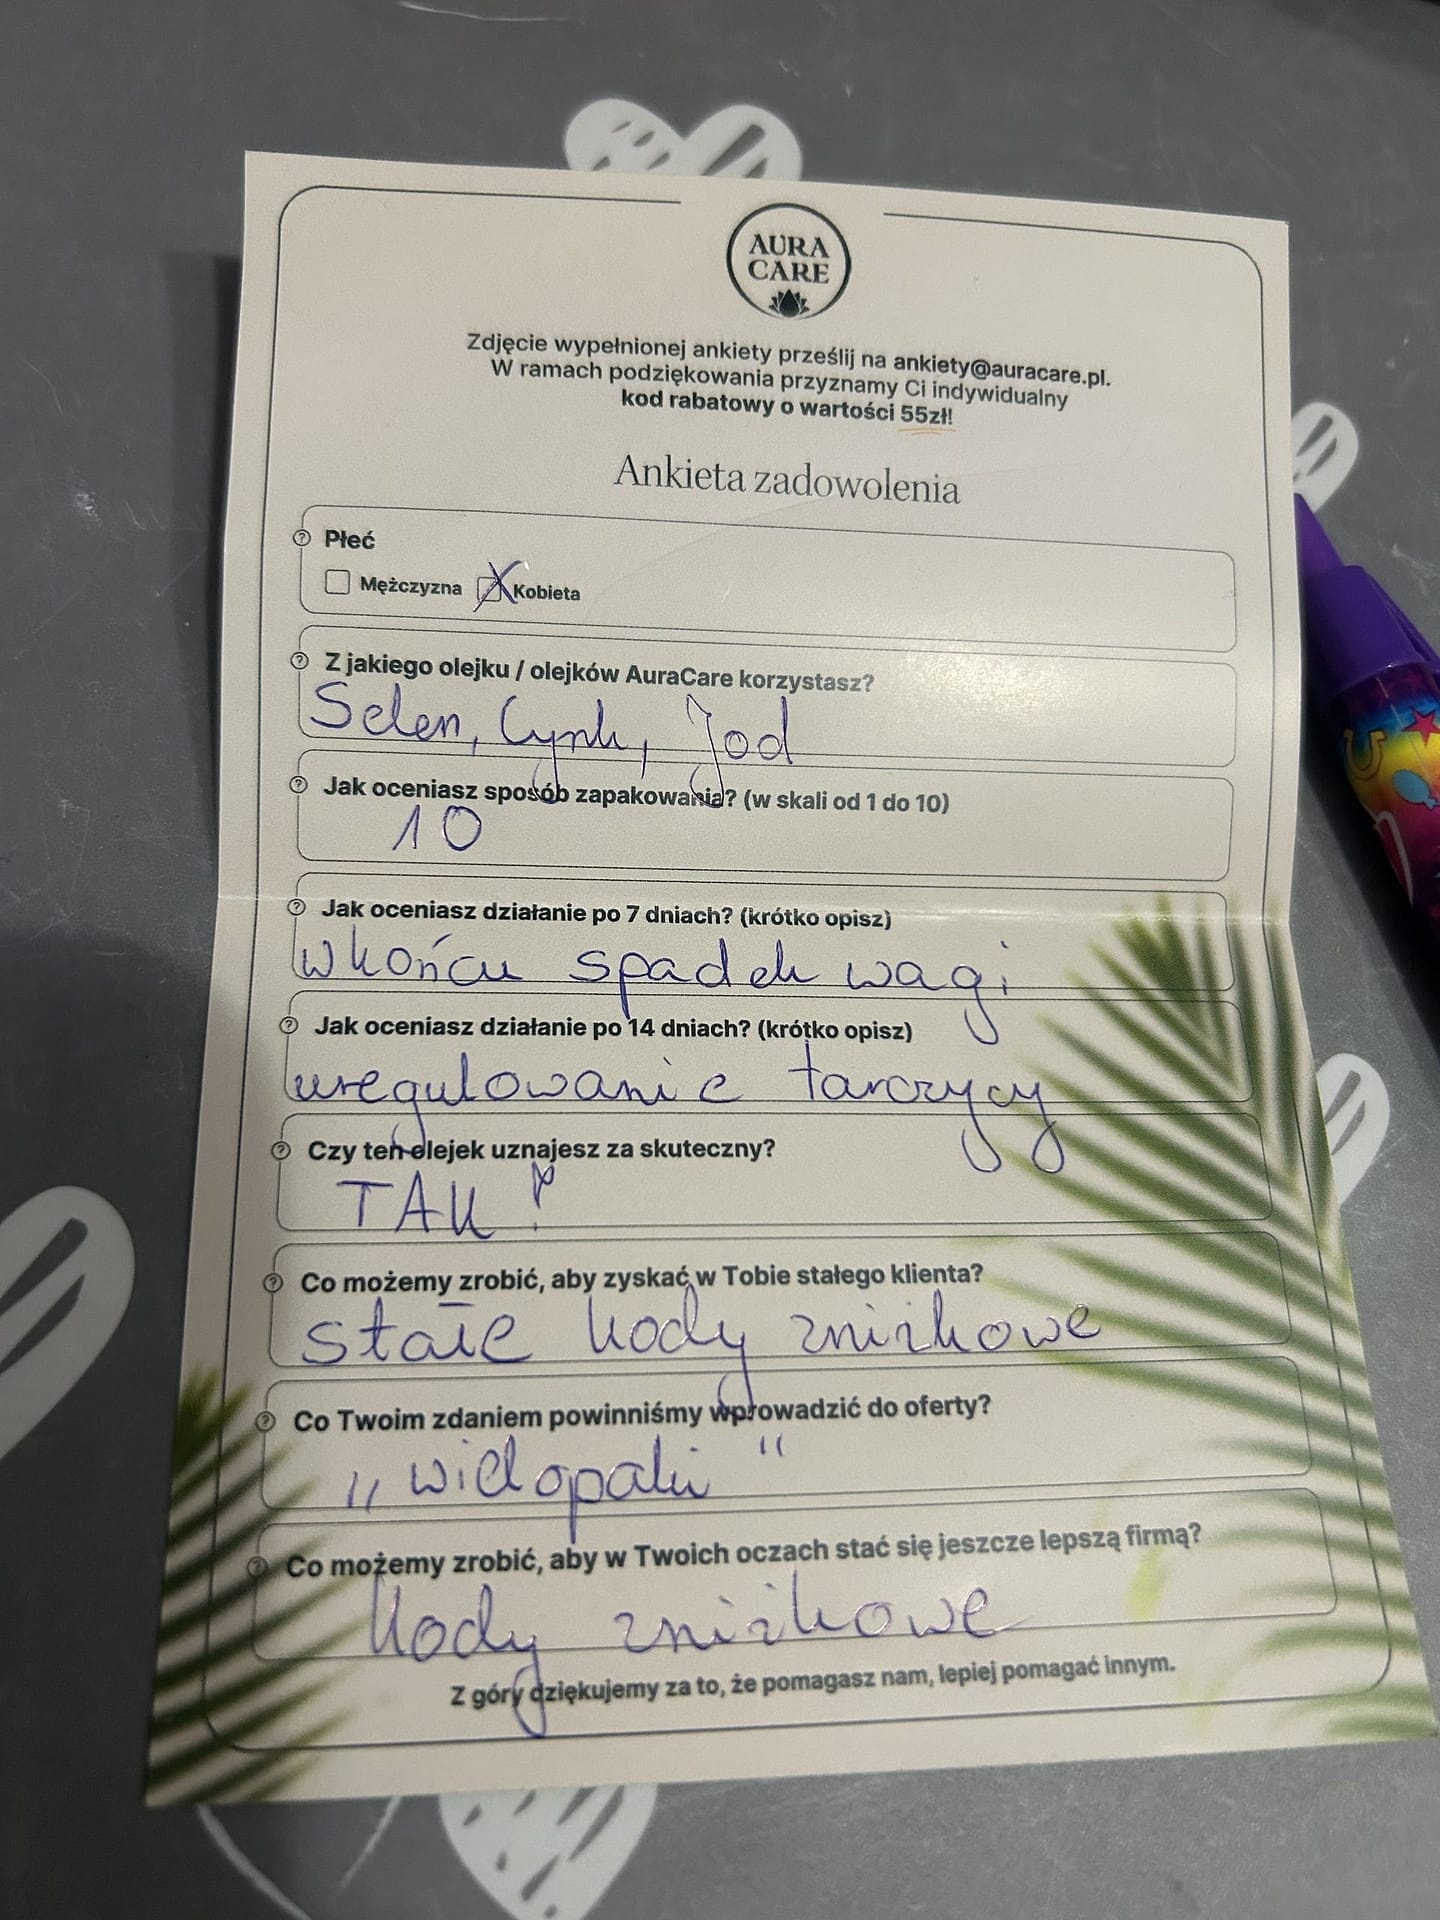 AURA
CARE
Zdjęcie wypełnionej ankiety prześlij na ankiety@auracare.pl.
W ramach podziękowania przyznamy Ci indywidualny
kod rabatowy o wartości 55zł!
Ankieta zadowolenia
Płeć
Mężczyzna Kobieta
Z jakiego olejku / olejków AuraCare korzystasz?
Selen, Cynk, Jod
Jak oceniasz sposób zapakowania? (w skali od 1 do 10)
10
Jak oceniasz działanie po 7 dniach? (krótko opisz)
wkońcu spadek wagi
Jak oceniasz działanie po 14 dniach? (krótko opisz)
uregulowanie tarczycy
Czy ten olejek uznajesz za skuteczny?
TAK!
Co możemy zrobić, aby zyskać w Tobie stałego klienta?
stałe kody zniżkowe
Co Twoim zdaniem powinniśmy wprowadzić do oferty?
„wielopaki"
Co możemy zrobić, aby w Twoich oczach stać się jeszcze lepszą firmą?
kody zniżkowe
Z góry dziękujemy za to, że pomagasz nam, lepiej pomagać innym.